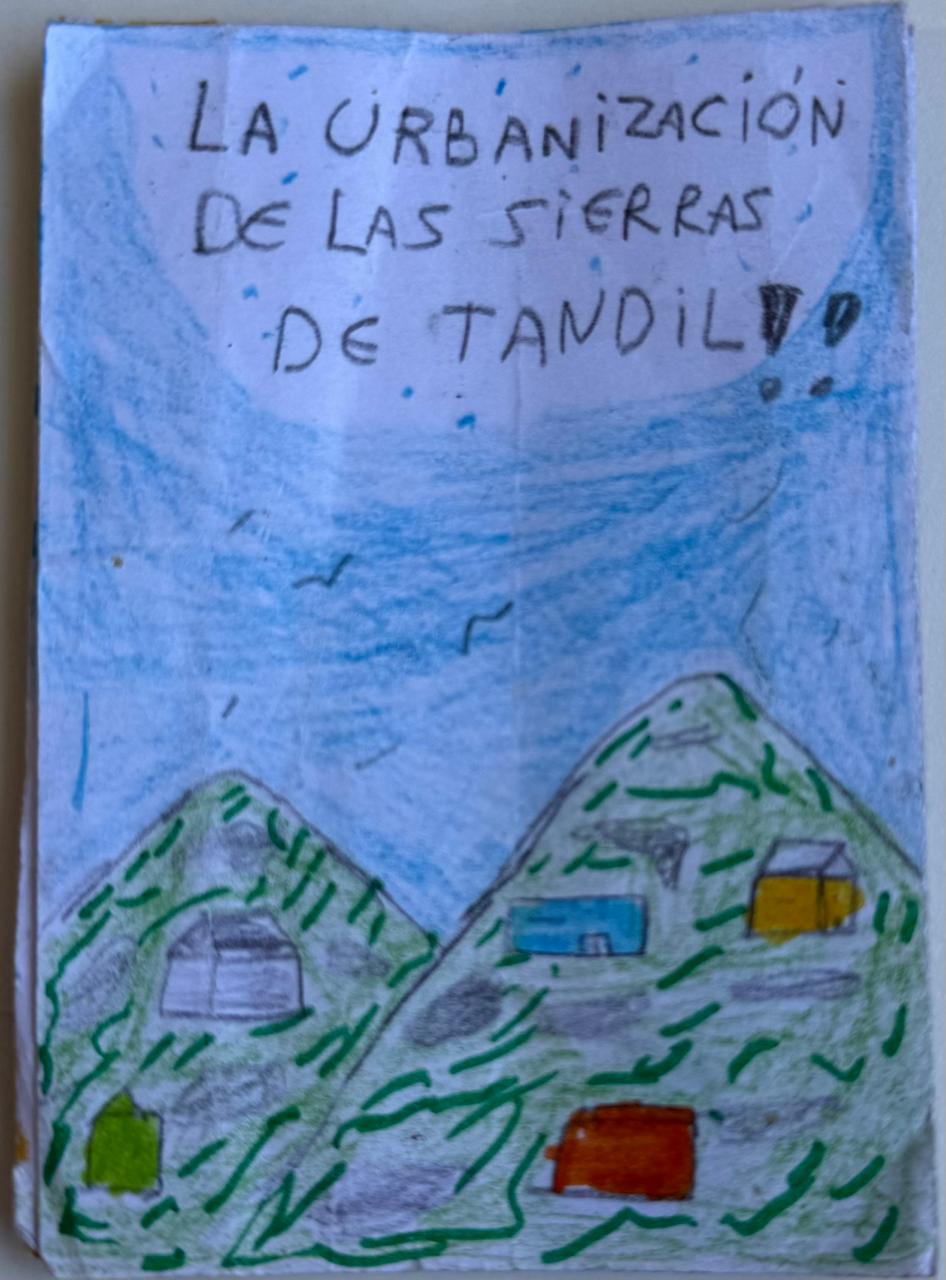 LA URBANiZACiÓN
DE LAS SiERRAS
DE TANDiL!!